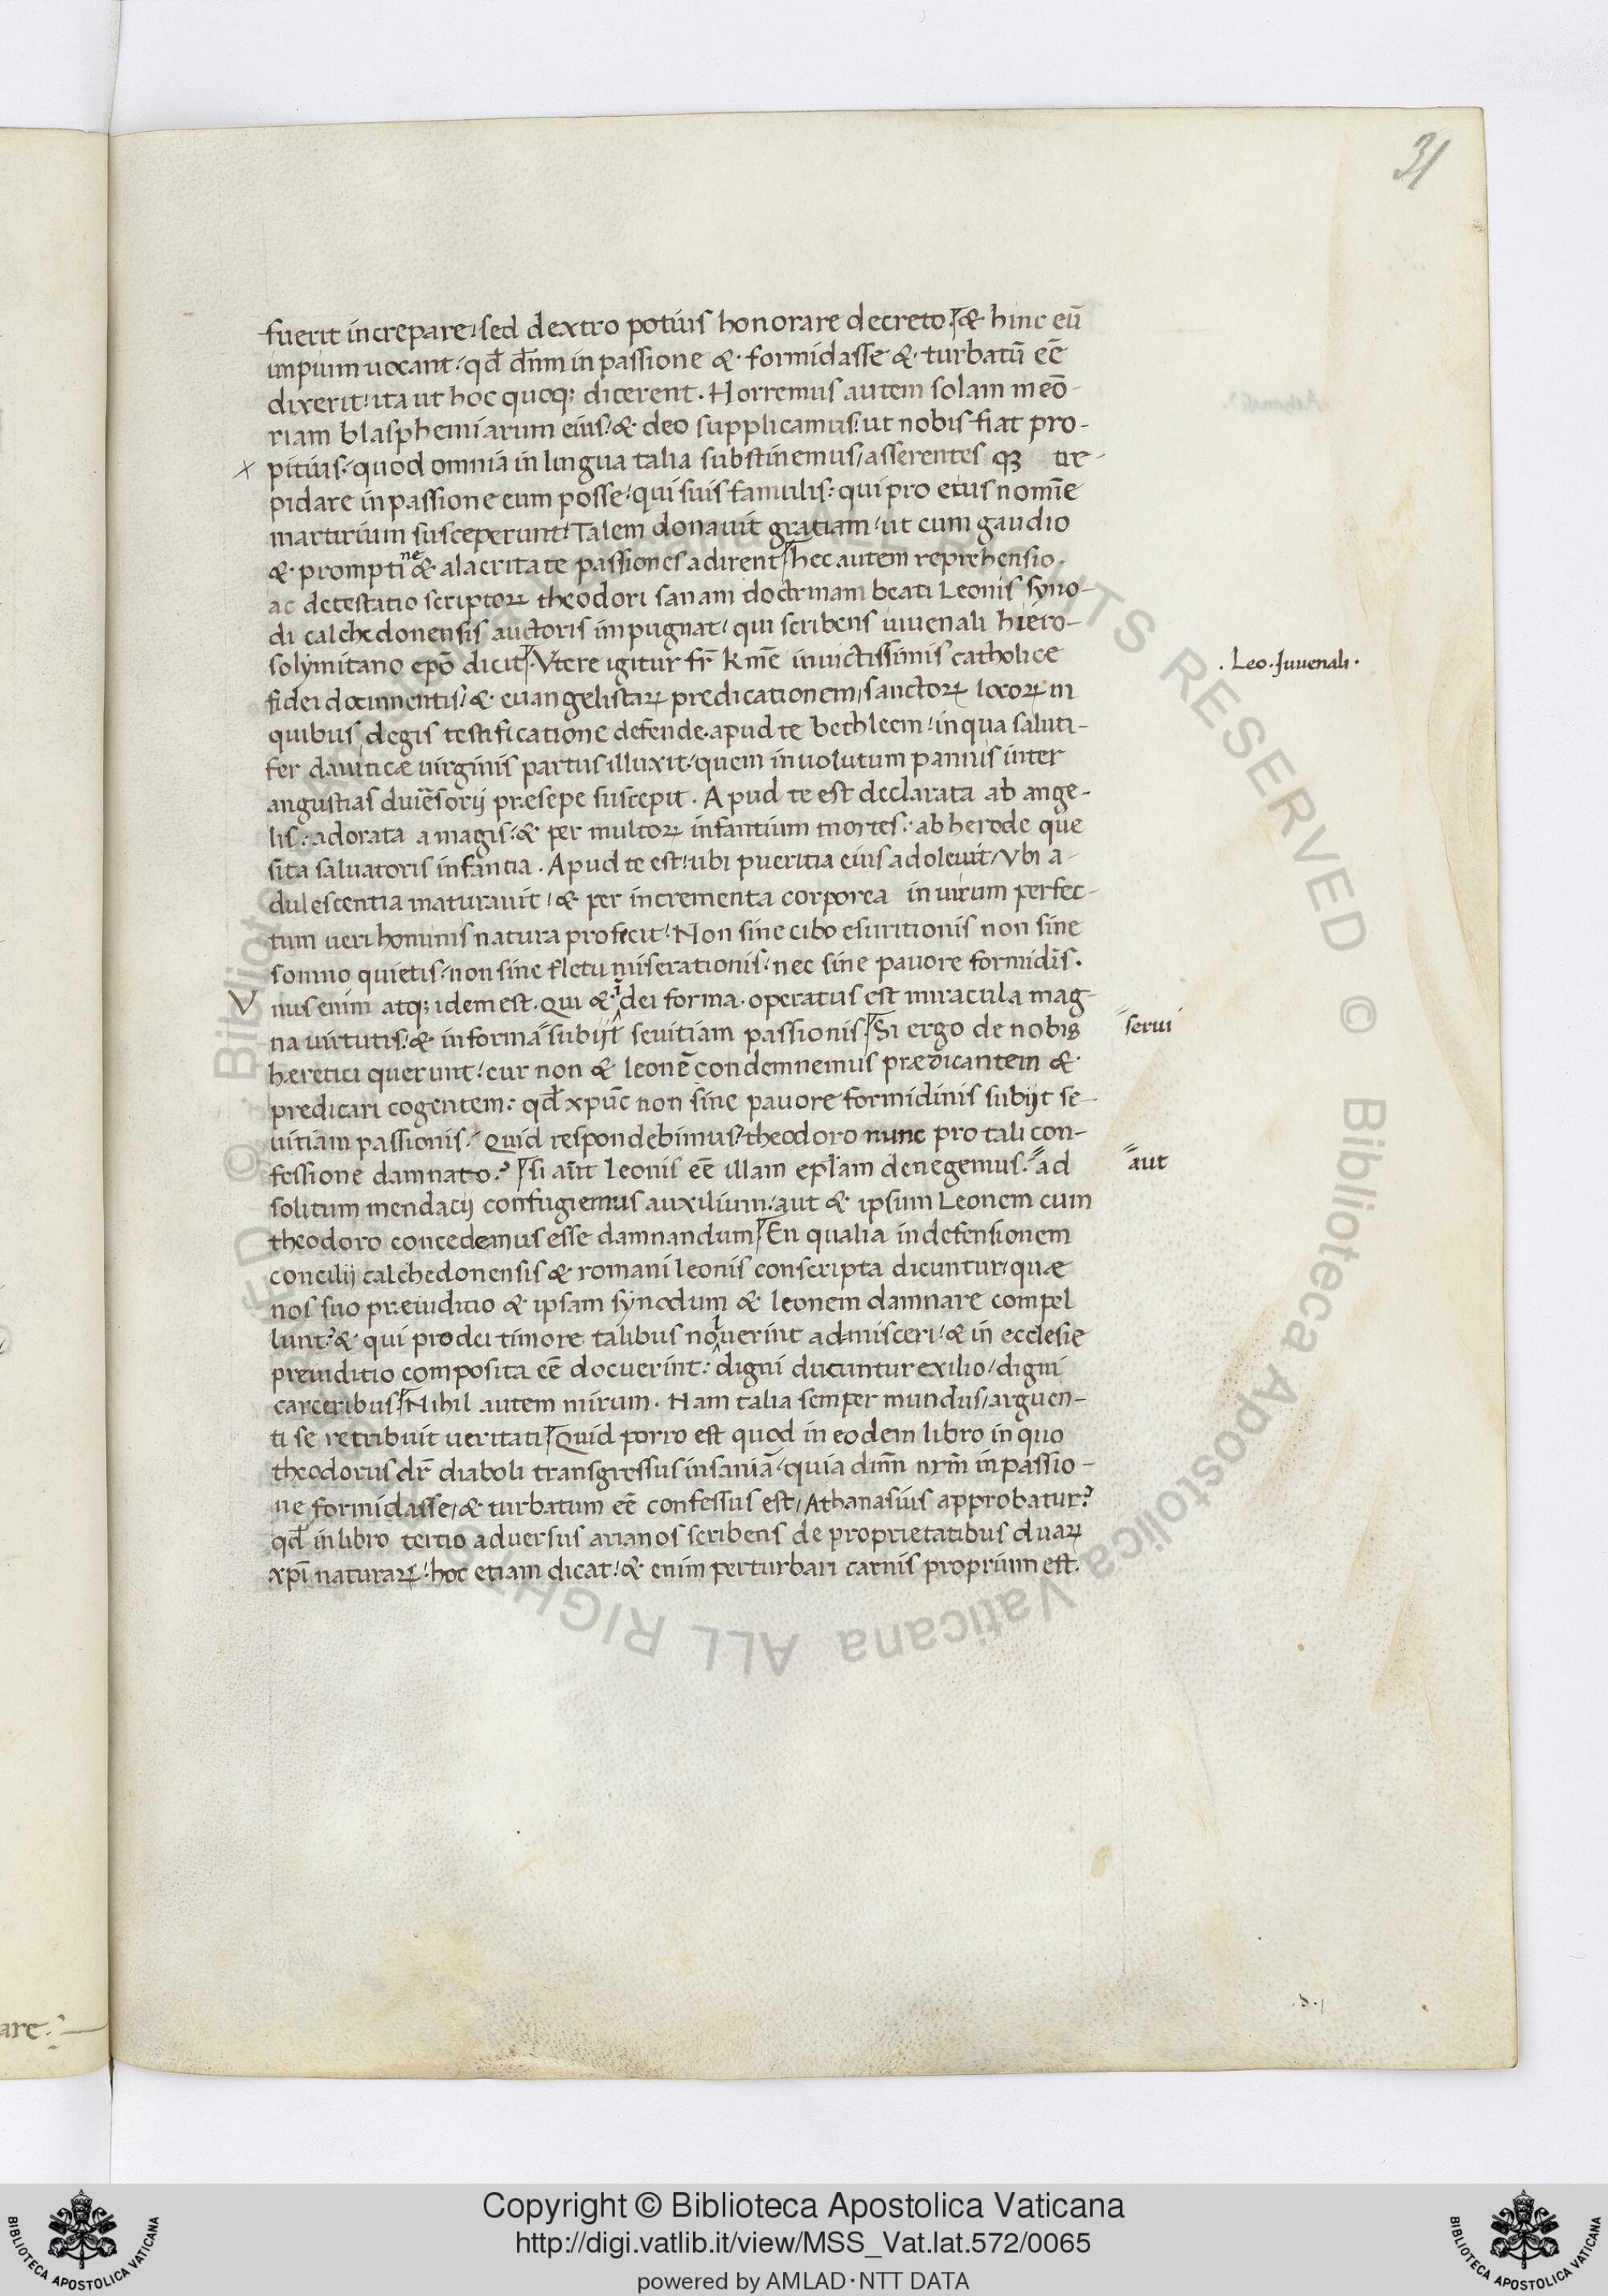 31
fuerit increpare, sed dextro potius honorare decreto & hinc eū
impium uocant, qđ đnm in passione &· formidasse &· turbatū eē
dixerit, ita ut hoc quoq; dicerent. Horremus autem solam meō-
riam blasphemiarum eius, & deo supplicamus, ut nobis fiat pro-
pitius, quod omniā in lingua talia substinemus, asserentes tre-
pidare in passione eum posse, qui suis famulis, qui pro eius nomīe
martirium susceperunt, Talem donauit gratiam, ut cum gaudio
&· promptīne & alacritate passiones adirent hec autem reprehensio.
ac detestatio scriptoꝝ theodori sanam doctrinam beati Leonis syno-
di calchedonensis auctoris impugnat, qui scribens iuuenali hiero-
solymitano epō dicit. Vtere igitur fr̄ Kmē inuictissimis catholice
. Leo. Juuenali.
fidei documentis, & euangelistaꝝ predicationem, sanctoꝝ locoꝝ in
quibus degis testificatione defende. apud te bethleem, in qua saluti-
fer dauiticæ uirginis partus illuxit, quem inuolutum pannis inter
angustias duiēsorij præsepe suscepit. Apud te est declarata ab ange-
lis: adorata a magis, & per multoꝝ infantium mortes. ab herode que
sita saluatoris infantia. Apud te est, ubi pueritia eius adoleuit, Vbi a-
dulescentia maturauit, & per incrementa corporea in uirum perfec-
tum ueri hominis natura profecit, Non sine cibo esuritionis non sine
somno quietis, non sine fletu miserationis, nec sine pauore formidīs.
V nus enim atq; idem est. Qui & ī dei forma. operatus est miracula mag-
na uirtutis, & in forma subijt seuitiam passionis Si ergo de nobis
serui
hæretici querunt, cur non & leonē condemnemus prædicantem &
predicari cogentem: qđ xpūc non sine pauore formidinis subijt se-
uitiam passionis. Quid respondebimus? theodoro nunc pro tali con-
fessione damnato? si aūt Leonis eē illam epłam denegemus. ad
aut
solitum mendacij confugiemus auxilium, aut & ipsum Leonem cum
theodoro concedemus esse damnandum En qualia in defensionem
concilij calchedonensis & romani leonis conscripta dicuntur, quæ
nos suo præiuditio & ipsam synodum & leonem damnare compel
lunt? & qui pro dei timore talibus noluerint admisceri, & in ecclesie
preiuditio composita eē docuerint: digni ducuntur exilio, digni
carceribus Nihil autem mirum. Nam talia semper mundus, arguen-
ti se retribuit ueritati Quid porro est quod in eodem libro in quo
theodorus dr̄ diaboli transgressus insaniā, quia dīm̄ nr̄m̄ in passio-
ne formidasse, & turbatum eē confessus est, Athanasius approbatur?
qđ in libro tertio aduersus arianos scribens de proprietatibus duaꝝ
xpī naturaꝝ, hoc etiam dicat, & enim perturbari carnis proprium est.
are.
Copyright © Biblioteca Apostolica Vaticana
http://digi.vatlib.it/view/MSS_Vat.lat.572/0065
powered by AMLAD·NTT DATA
BIBLIOTECA APOSTOLICA VATICANA
BIBLIOTECA APOSTOLICA VATICANA
© Biblioteca Apostolica Vaticana ALL RIGHTS RESERVED